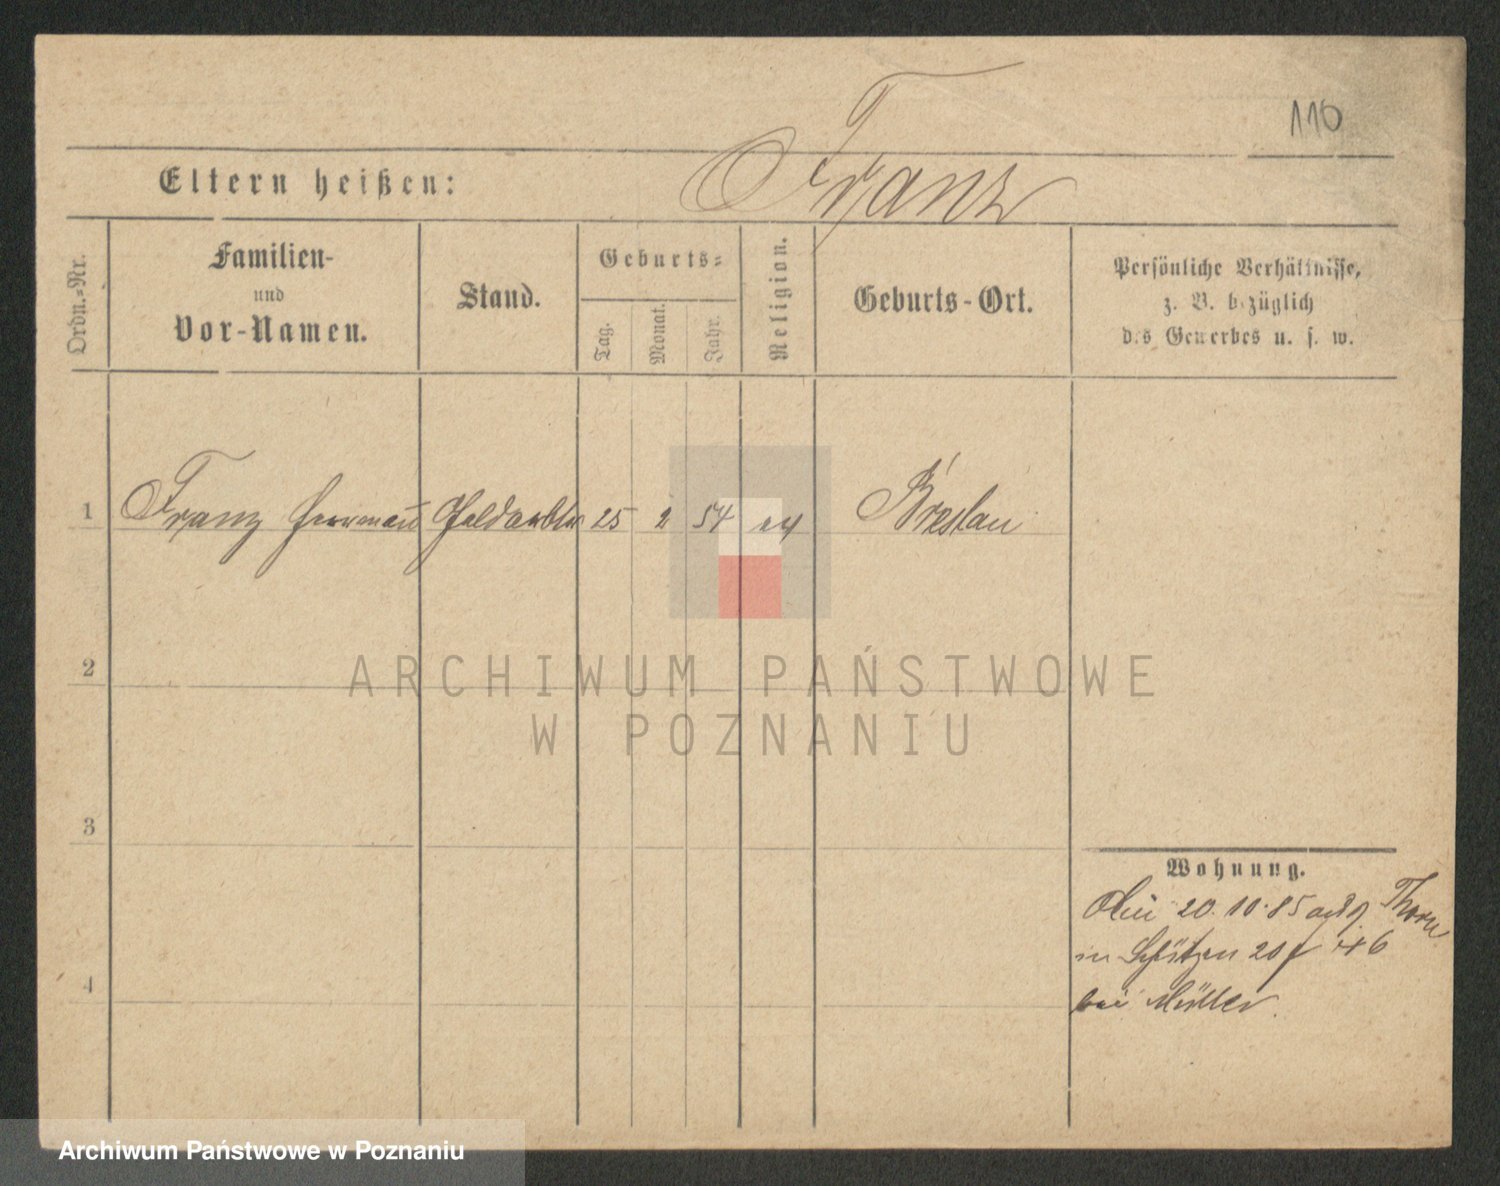 110
Eltern heißen: Franz
Ordn.-Nr.
Familien-
und
Vor-Namen.
Stand.
Geburts-
Tag.
Monat.
Jahr.
Religion.
Geburts-Ort.
Persönliche Verhältnisse,
z. B. bezüglich
des Gewerbes u. s. w.
1 Franz Herrmann 25 2 54 Breslau
2
ARCHIWUM PAŃSTWOWE
W POZNANIU
3
Wohnung.
20.10.85 Thorn
in Schützen
4
bei Müller.
Archiwum Państwowe w Poznaniu